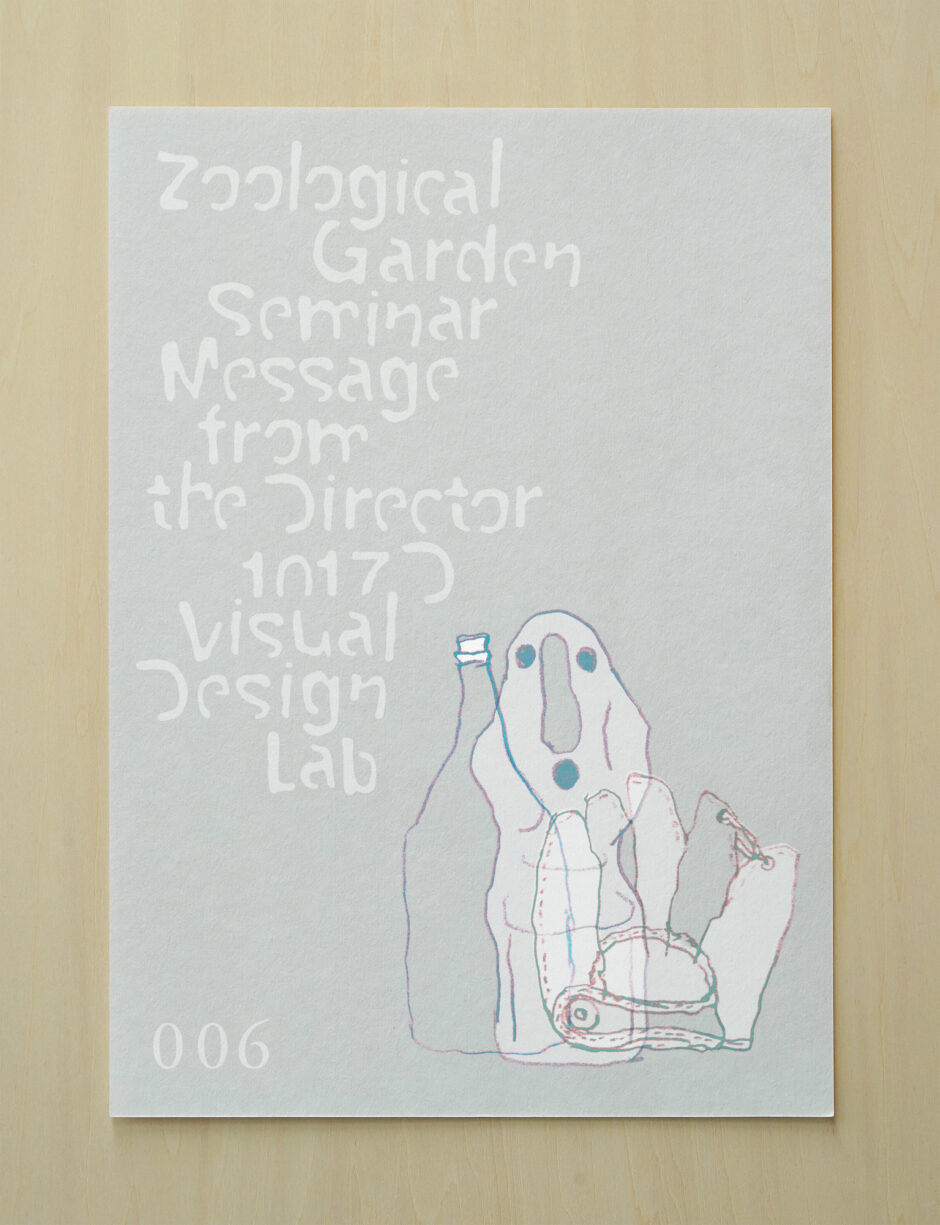 Zoological
Garden
Seminar
Message
from
the Director
1017 D
Visual
Design
Lab
006